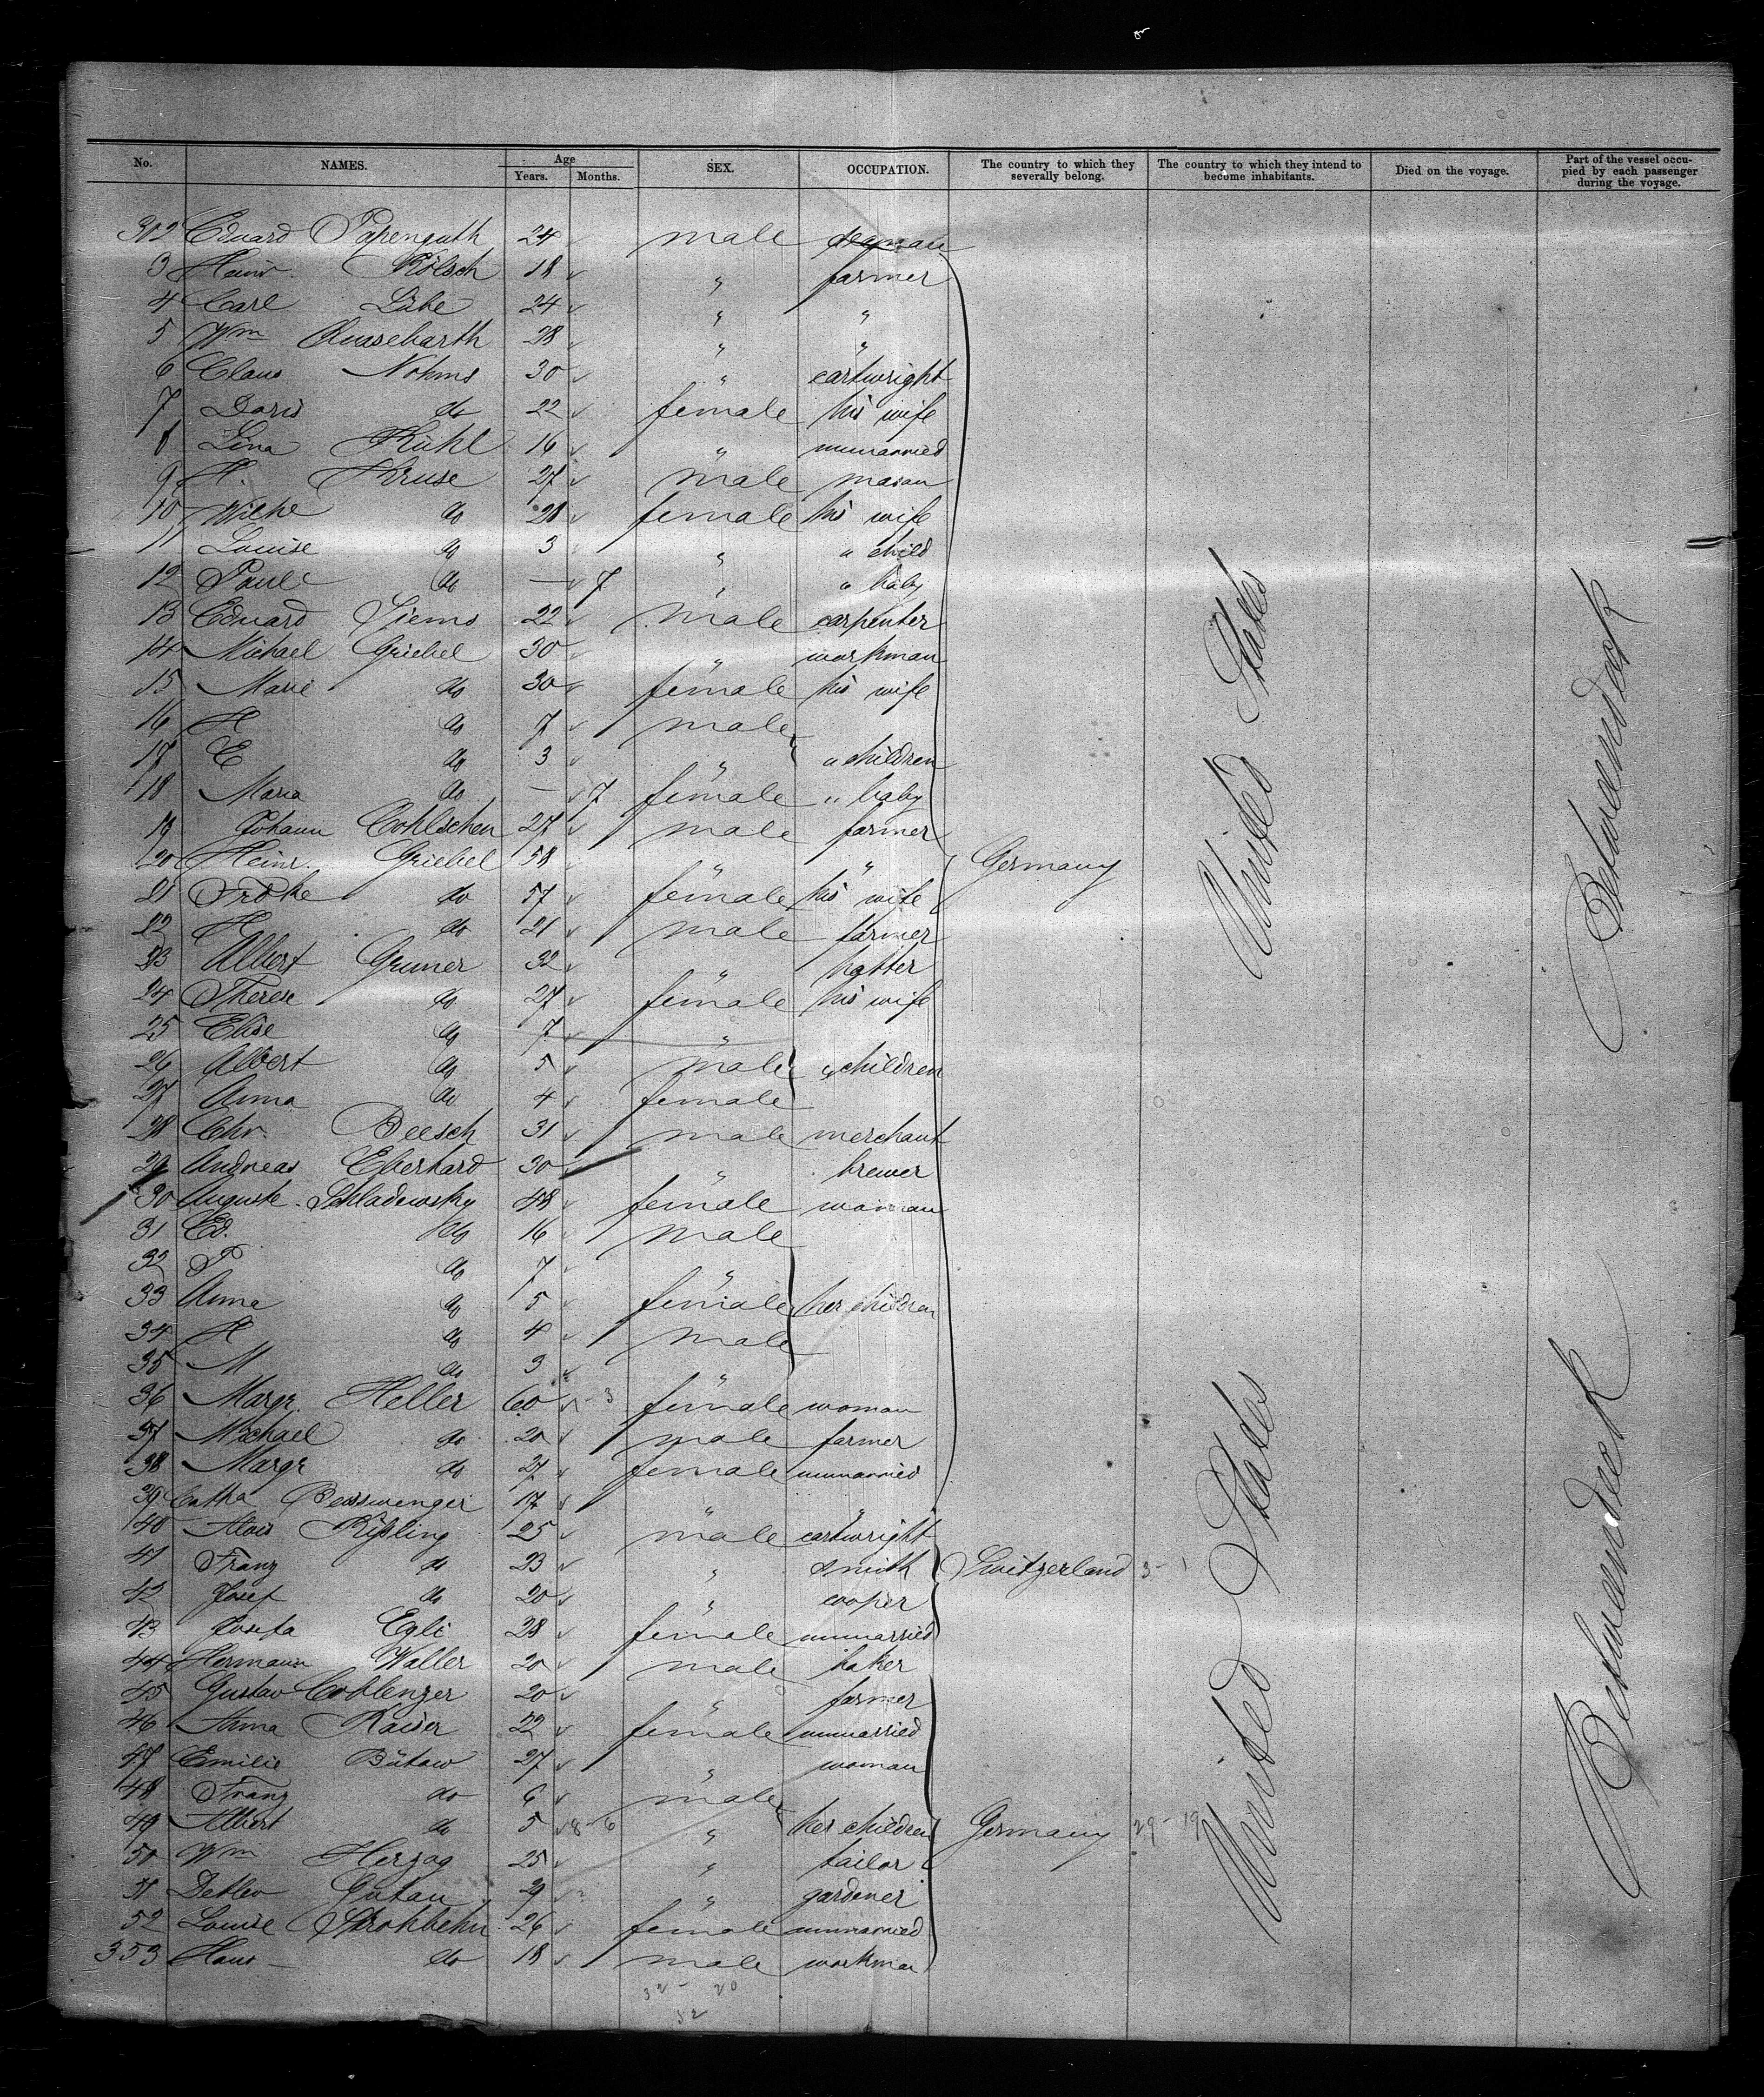 No. NAMES. Age Years. Months. SEX. OCCUPATION. The country to which they severally belong. The country to which they intend to become inhabitants. Died on the voyage. Part of the vessel occupied by each passenger during the voyage.
302 Eduard Papenguth 24 male seaman
3 Heinr. Kölsch 18 " farmer
4 Carl Lübe 24 " "
5 Wm Quasebarth 28 " "
6 Claus Nohms 30 " cartwright
7 Doris do 22 female his wife
8 Lina Kühl 16 " unmarried
9 H. Kruse 27 male mason
10 Wilhe do 28 female his wife
11 Louise do 3 " " child
12 Paul do — 7 " " baby
13 Eduard Siems 22 male carpenter
14 Michael Griebel 30 " workman
15 Marie do 30 female his wife
16 H do 7 male
17 E do 3 " " children
18 Maria do — 7 female " baby
19 Johann Cohlschen 27 male farmer
20 Heinr. Griebel 58 " " Germany
21 Froke do 57 female his wife
22 H do 21 male farmer
23 Albert Gruner 32 " hatter
24 Therese do 27 female his wife
25 Elise do 7 "
26 Albert do 5 male " children
27 Anna do 4 female
28 Chr. Beesch 31 male merchant
29 Andreas Eberhard 30 " brewer
30 Auguste Schladewsky 48 female woman
31 Ed. do 16 male
32 F do 7 "
33 Anna do 5 female her children
34 H do 4 male
35 M do 3 "
36 Margr. Heller 60 3 female woman
37 Michael do 20 male farmer
38 Margr do 21 female unmarried
39 Catha Beisswenger 17 " "
40 Alois Kipling 25 male cartwright
41 Franz do 23 " smith Switzerland 3-1
42 Josef do 20 " cooper
43 Josefa Egli 28 female unmarried
44 Hermann Waller 20 male baker
45 Gustav Coblenzer 20 " farmer
46 Anna Kaiser 22 female unmarried
47 Emilie Bütow 27 " woman
48 Franz do 6 male
49 Albert do 5 8-6 " her children Germany 29-19
50 Wm Herzog 25 " tailor
51 Detlev Gutau 29 " gardener
52 Louise Strohbehn 26 female unmarried
353 Hans — do 18 male workman
32 - 20
52
United States
Betweendeck
United States
Betweendeck